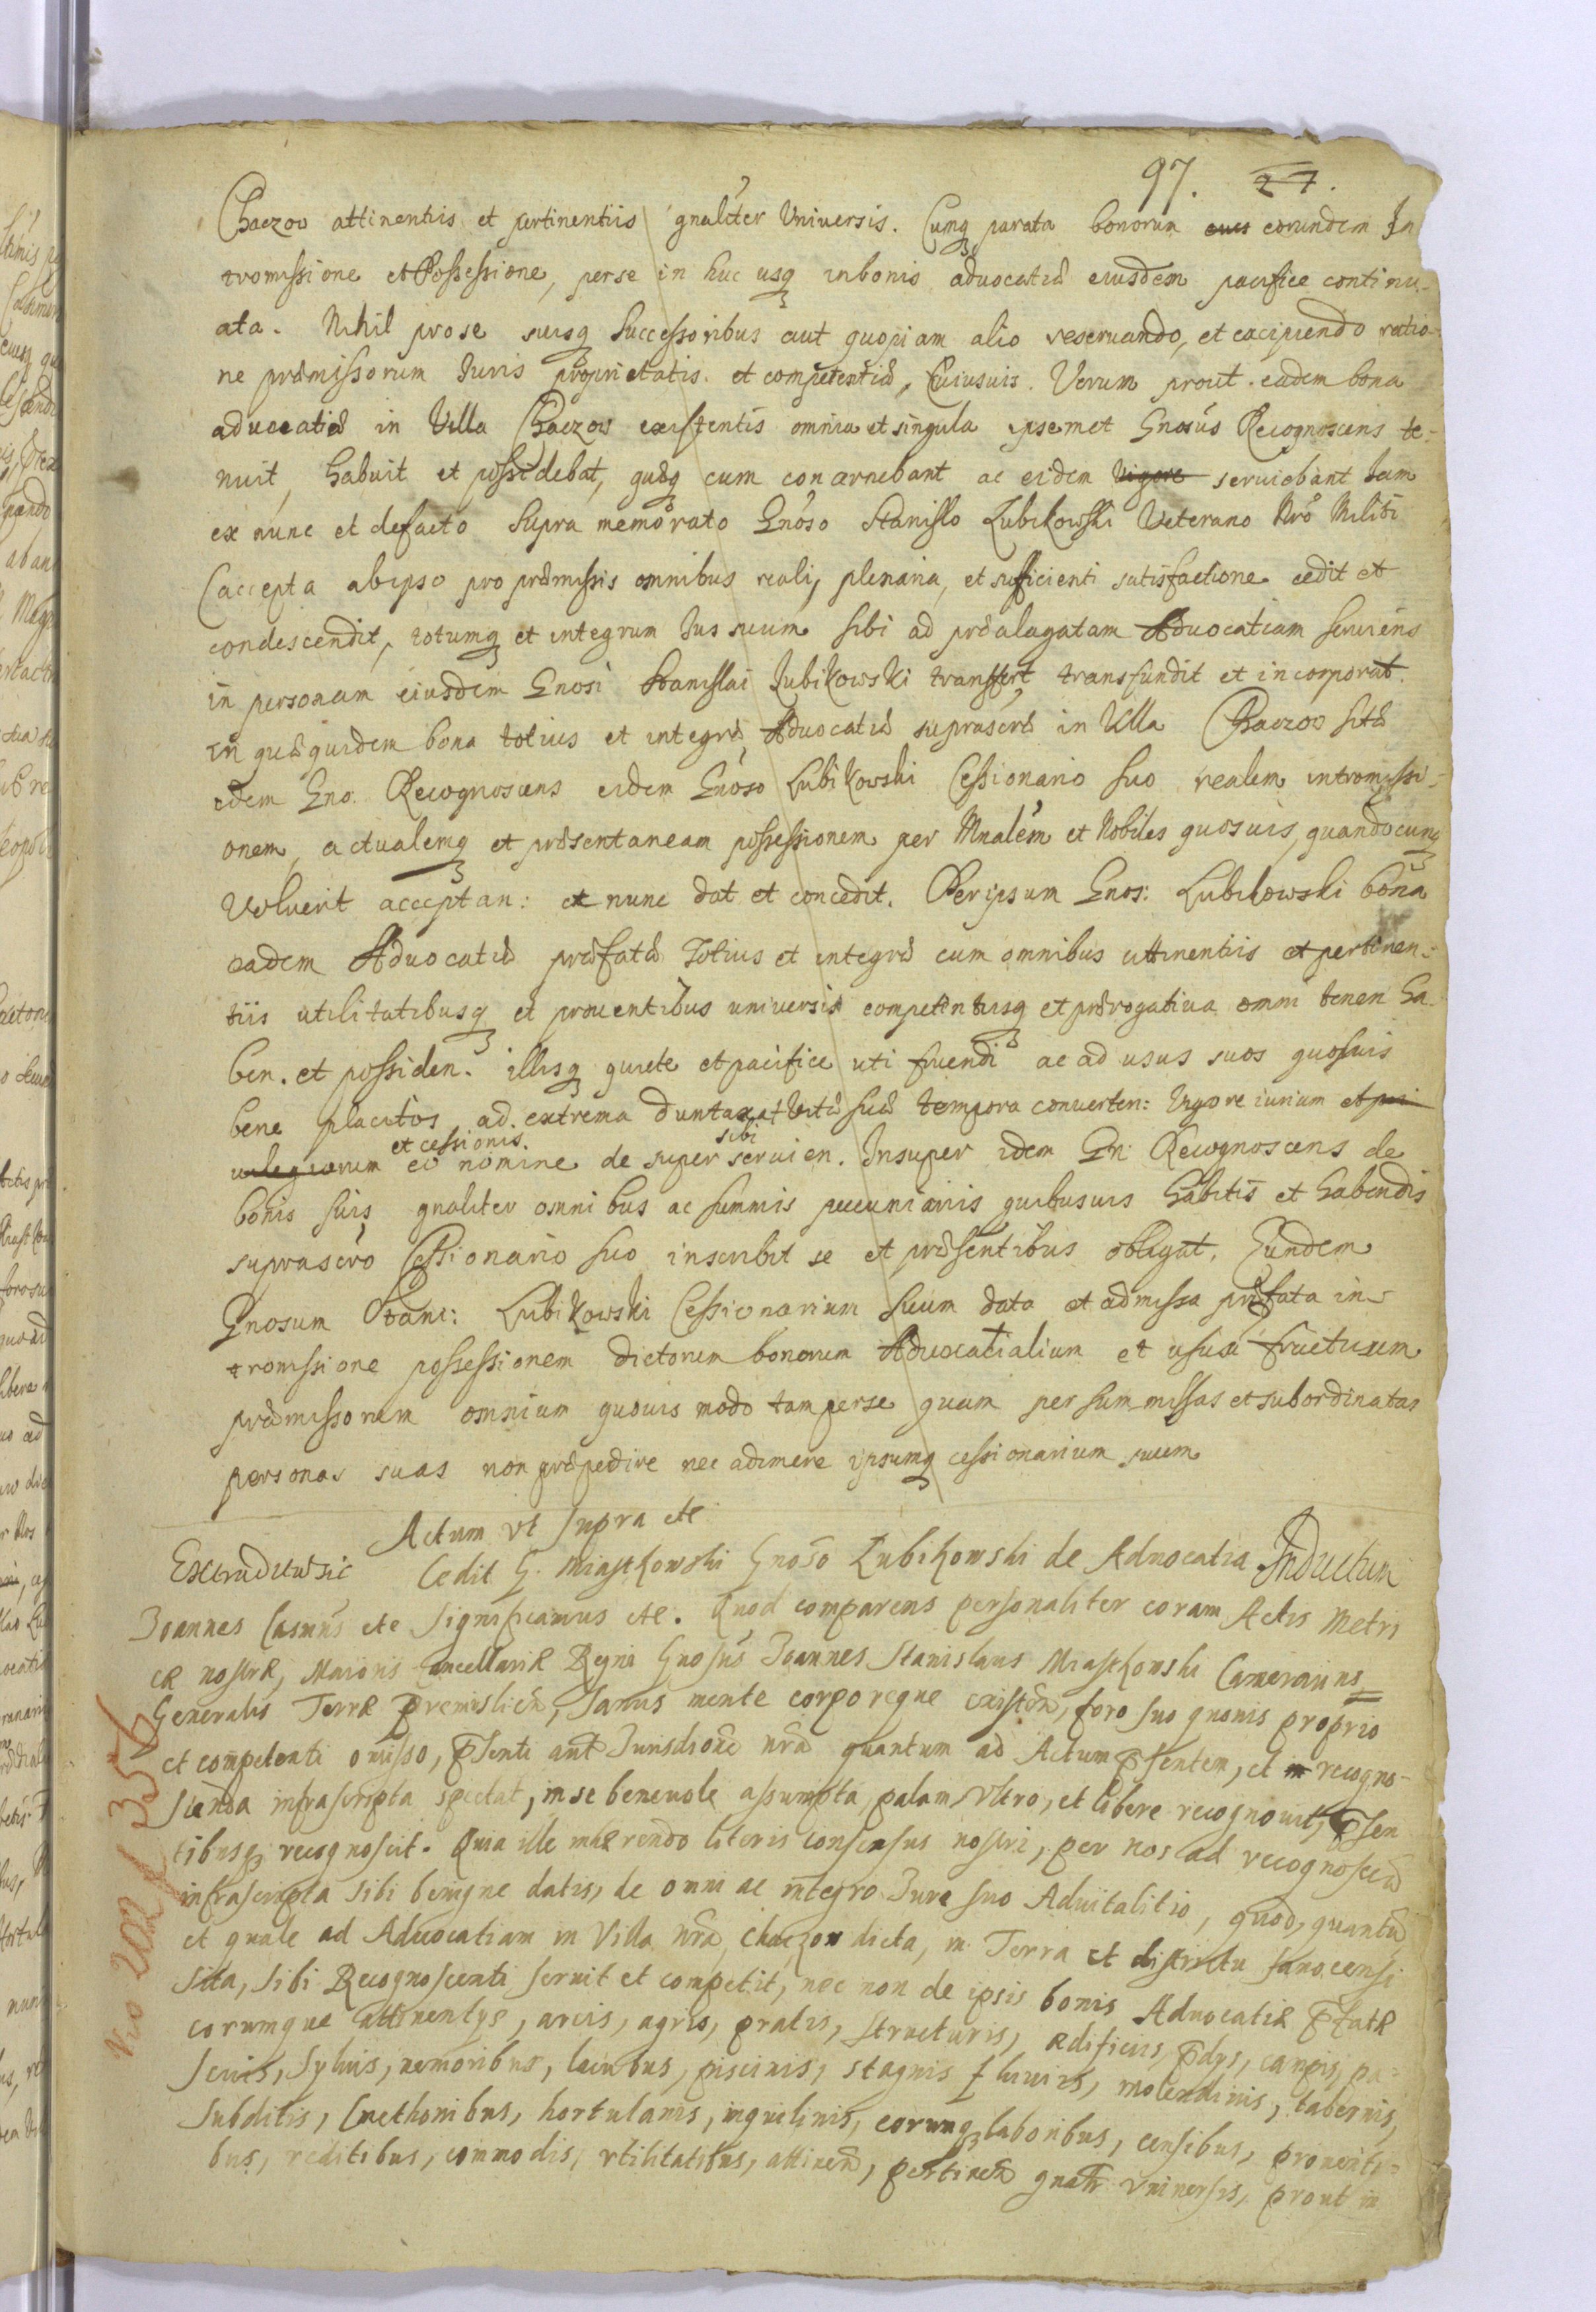 97. 27.
Chaczow attinentiis et pertinentiis gnaliter Universis. Cumq parata bonorum eius eorundem In
tromissione et Possessione, per se in huc usq in bonis advocatiæ eiusdem pacifice continu-
ata. Nihil pro se suisq Successoribus aut quopiam alio reseruando, et excipiendo ratio-
ne præmissorum Iuris proprietatis et competentiæ, Cuiusuis. Verum prout eadem bona
aduocatiæ in Villa Chaczow existentis omnia et singula ipsemet Gnosus Recognoscens te-
nuit, habuit et possidebat, quæq eum concernebant ac eidem vigore seruiebant Iam
ex nunc et defacto Supra memorato Gnoso Stanislo Lubikowski Veterano Nro Militi
(accepta ab ipso pro præmissis omnibus reali, plenaria, et sufficienti satisfactione cedit et
condescendit, totumq et integrum Ius suum sibi ad præalagatam Aduocatiam seruiens
in personam eiusdem Gnosi Stanislai Lubikowski transfert, transfundit et incorporat.
in quæquidem bona totius et integræ Aduocatiæ suprascrtæ in Villa Chaczow sitæ
idem Gno. Recognoscens eidem Gnoso Lubikowski Cessionario suo realem intromissi-
onem, actualemq et præsentaneam possessionem per Mnalem et Nobiles quosuis, quandocunq
voluerit acceptan: ex nunc dat et concedit. Per ipsum Gnos: Lubikowski bona
eadem Aduocatiæ præfatæ Totius et integræ cum omnibus attinentiis et pertinen-
tiis utilitatibusq et prouentibus universis competentiisq et prærogatiua omni tenen ha-
ben. et possiden. illisq quiete et pacifice uti fruendi ac ad usus suos quosuis
bene placitos ad extrema duntaxat vitæ suæ tempora conuerten: Vigore iurium et pri
uilegiorum et cessionis eo nomine de super sibi seruien. Insuper idem Gn: Recognoscens de
bonis suis gnaliter omnibus ac summis pecuniariis quibusuis habitis et habendis
suprascro Cessionario suo inscribit se et præsentibus obligat. Eundem
Gnosum Stani: Lubikowski Cessionarium suum data et admissa præfata in-
tromissione possessionem dictorum bonorum Aduocatialium et usum fructuum
præmissorum omnium quouis modo tam per se quam per summissas et subordinatas
personas suas non præpedire nec adimere ipsumq cessionarium suum
Actum vt supra etc
Extraditu sic Cedit G. Miastkowski Gnoso Lubikowski de Aduocatia Inductum
Joannes Casimirs etc Significamus etc. Quod comparens personaliter coram Actis Metri
cæ nostræ, Maioris Cancellariæ Regni Gnosus Joannes Stanislaus Miastkowski Camerarius
Generalis Terræ Premislien, sanus mente corporeque existen, foro suo quouis proprio
et competenti omisso, psenti aut Jurisdione nra quantum ad Actum psentem, et in recogno-
scenda infrascripta spectat, in se beneuole assumpta, palam vltro, et libere recognouit, psen
tibusq recognoscit. Quia ille inhærendo literis consensus nostri, per nos ad recognoscen
infrascripta sibi benigne datis, de omni ac integro Jure suo Aduitalitio, quod, quantu
et quale ad Aduocatiam in Villa nra, Chaczow dicta, in Terra et districtu Sanocensi
sita, sibi Recognoscenti seruit et competit, nec non de ipsis bonis Aduocatiæ pfatæ
eorumque attinentys, areis, agris, pratis, structuris, ædificiis, pdys, campis, pa-
scuis, syluis, nemoribus, lacubus, piscinis, stagnis fluuiis, molendinis, tabernis,
subditis, Cmethonibus, hortulanis, inquilinis, eorumq laboribus, censibus, prouenti-
bus, reditibus, commodis, vtilitatibus, attinen, pertinen gnalr vniuersis, prout in
No 202 f 356